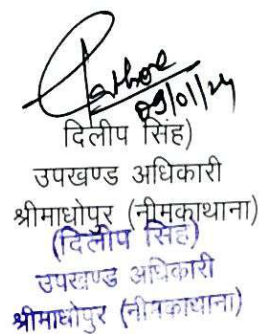 09/01/24
दिलीप सिंह)
उपखण्ड अधिकारी
श्रीमाधोपुर (नीमकाथाना)
(दिलीप सिंह)
उपखण्ड अधिकारी
श्रीमाधोपुर (नीमकाथाना)